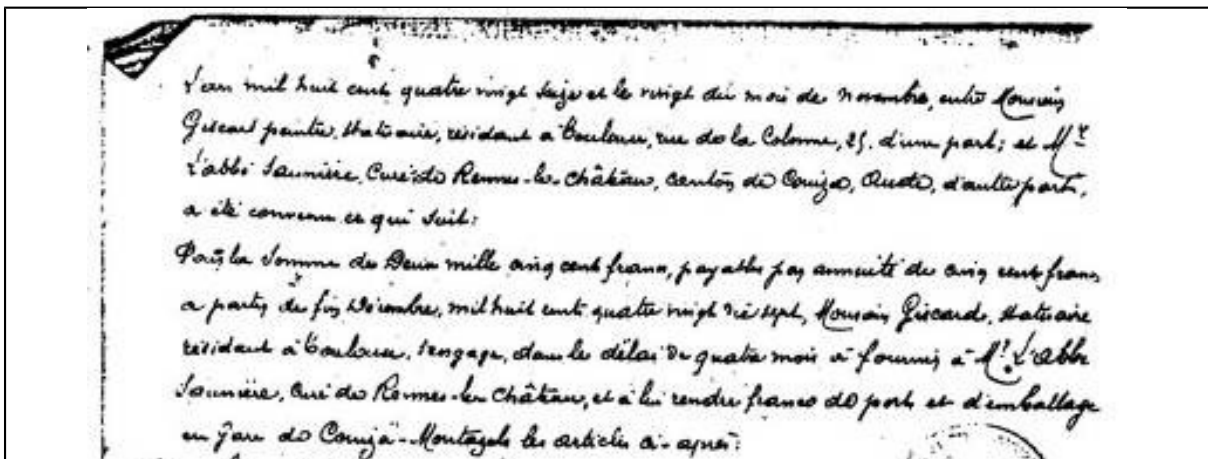 L'an mil huit cent quatre vingt seize et le vingt du mois de novembre, entre Monsieur
Giscard peintre, statuaire, résidant à Toulouse, rue de la Colonne, 25, d'une part; et Mr
L'abbé Saunière, Curé de Rennes-le-Château, canton de Couiza, Aude, d'autre part,
a été convenu ce qui suit:
Pour la somme de Deux mille cinq cent francs, payables par annuité de cinq cent francs
a partir de fin Décembre, mil huit cent quatre vingt dix sept, Monsieur Giscard, statuaire
résidant à Toulouse, s'engage, dans le délai de quatre mois à fournir à Mr. L'abbé
Saunière, curé de Rennes-le-Château, et à lui rendre franco de port et d'emballage
en gare de Couiza-Montazels les articles ci-après: